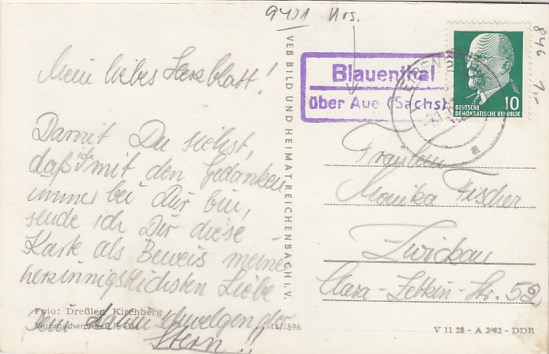 9401 Krs.
846
1,-
Mein liebes Herzblatt!
Damit Du siehst,
daß ich mit den Gedanken
immer bei Dir bin,
sende ich Dir diese
Karte als Beweis meiner
herzinnigstlichsten Liebe
Dein
Stern"
Foto: Dreßler, Kirchberg
VEB BILD UND HEIMAT REICHENBACH I. V.
Blauenthal
über Aue (Sachs)
10
DEUTSCHE
DEMOKRATISCHE REPUBLIK
Fräulein
Monika Fischer
Zwickau
Clara-Zetkin-Str. 52
V 11 28 - A 3/62 - DDR